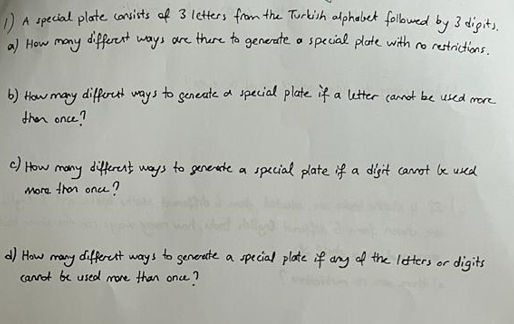 1) A special plate consists of 3 letters from the Turkish alphabet followed by 3 digits.
a) How many different ways are there to generate a special plate with no restrictions.
b) How many different ways to generate a special plate if a letter cannot be used more
than once?
c) How many different ways to generate a special plate if a digit cannot be used
more than once?
d) How many different ways to generate a special plate if any of the letters or digits
cannot be used more than once?